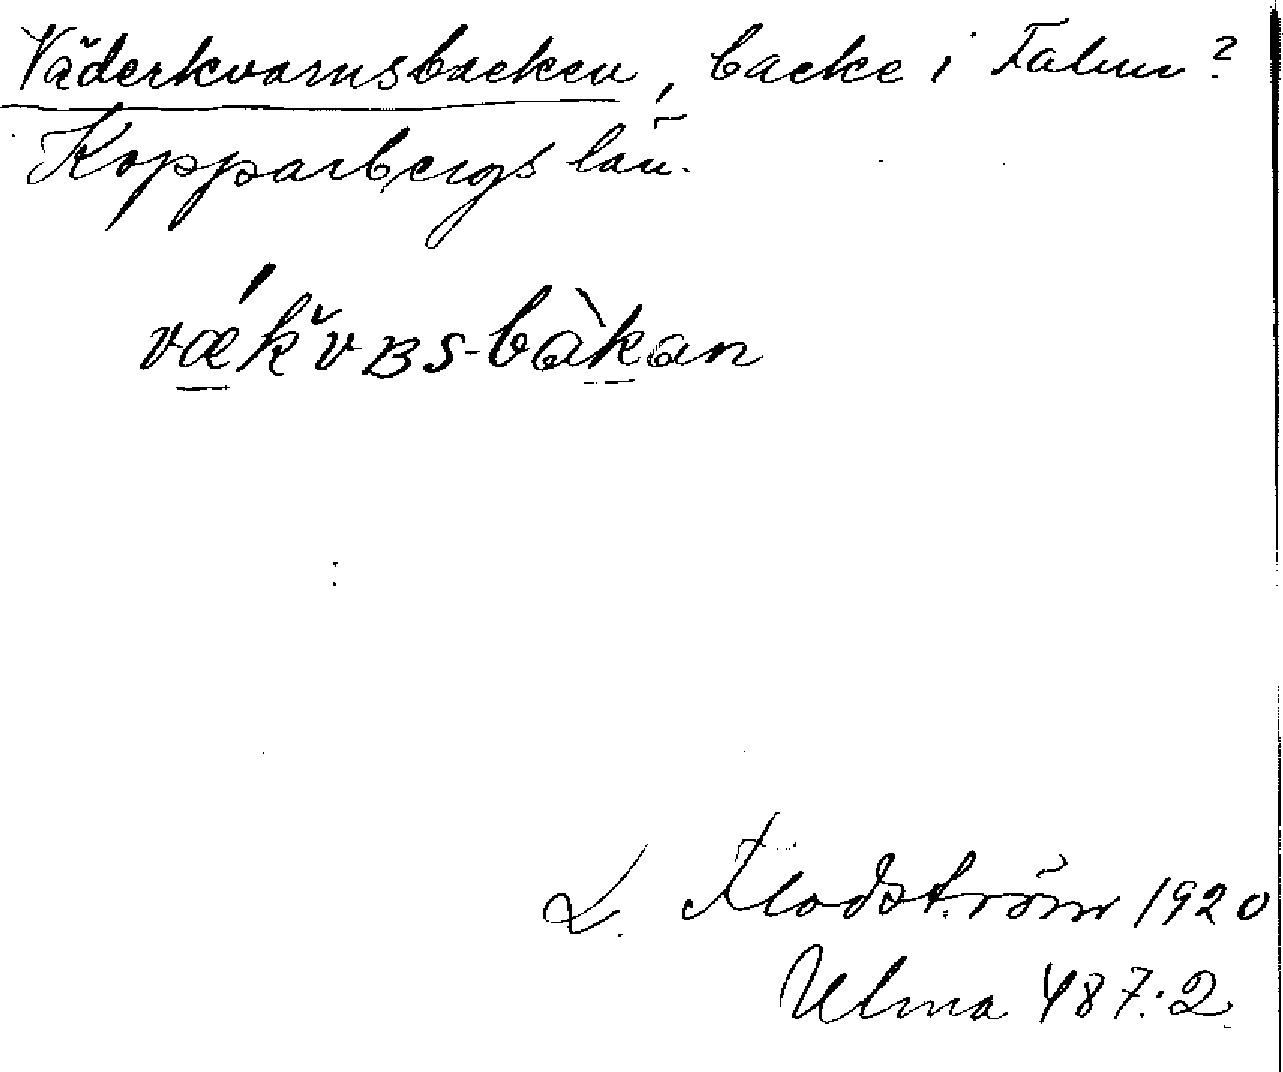 Väderkvarnsbacken, backe i Falun?
Kopparbergs län.
vǽkv̌ʙs-bàkan
L. Flodström 1920
Ulma 487:2